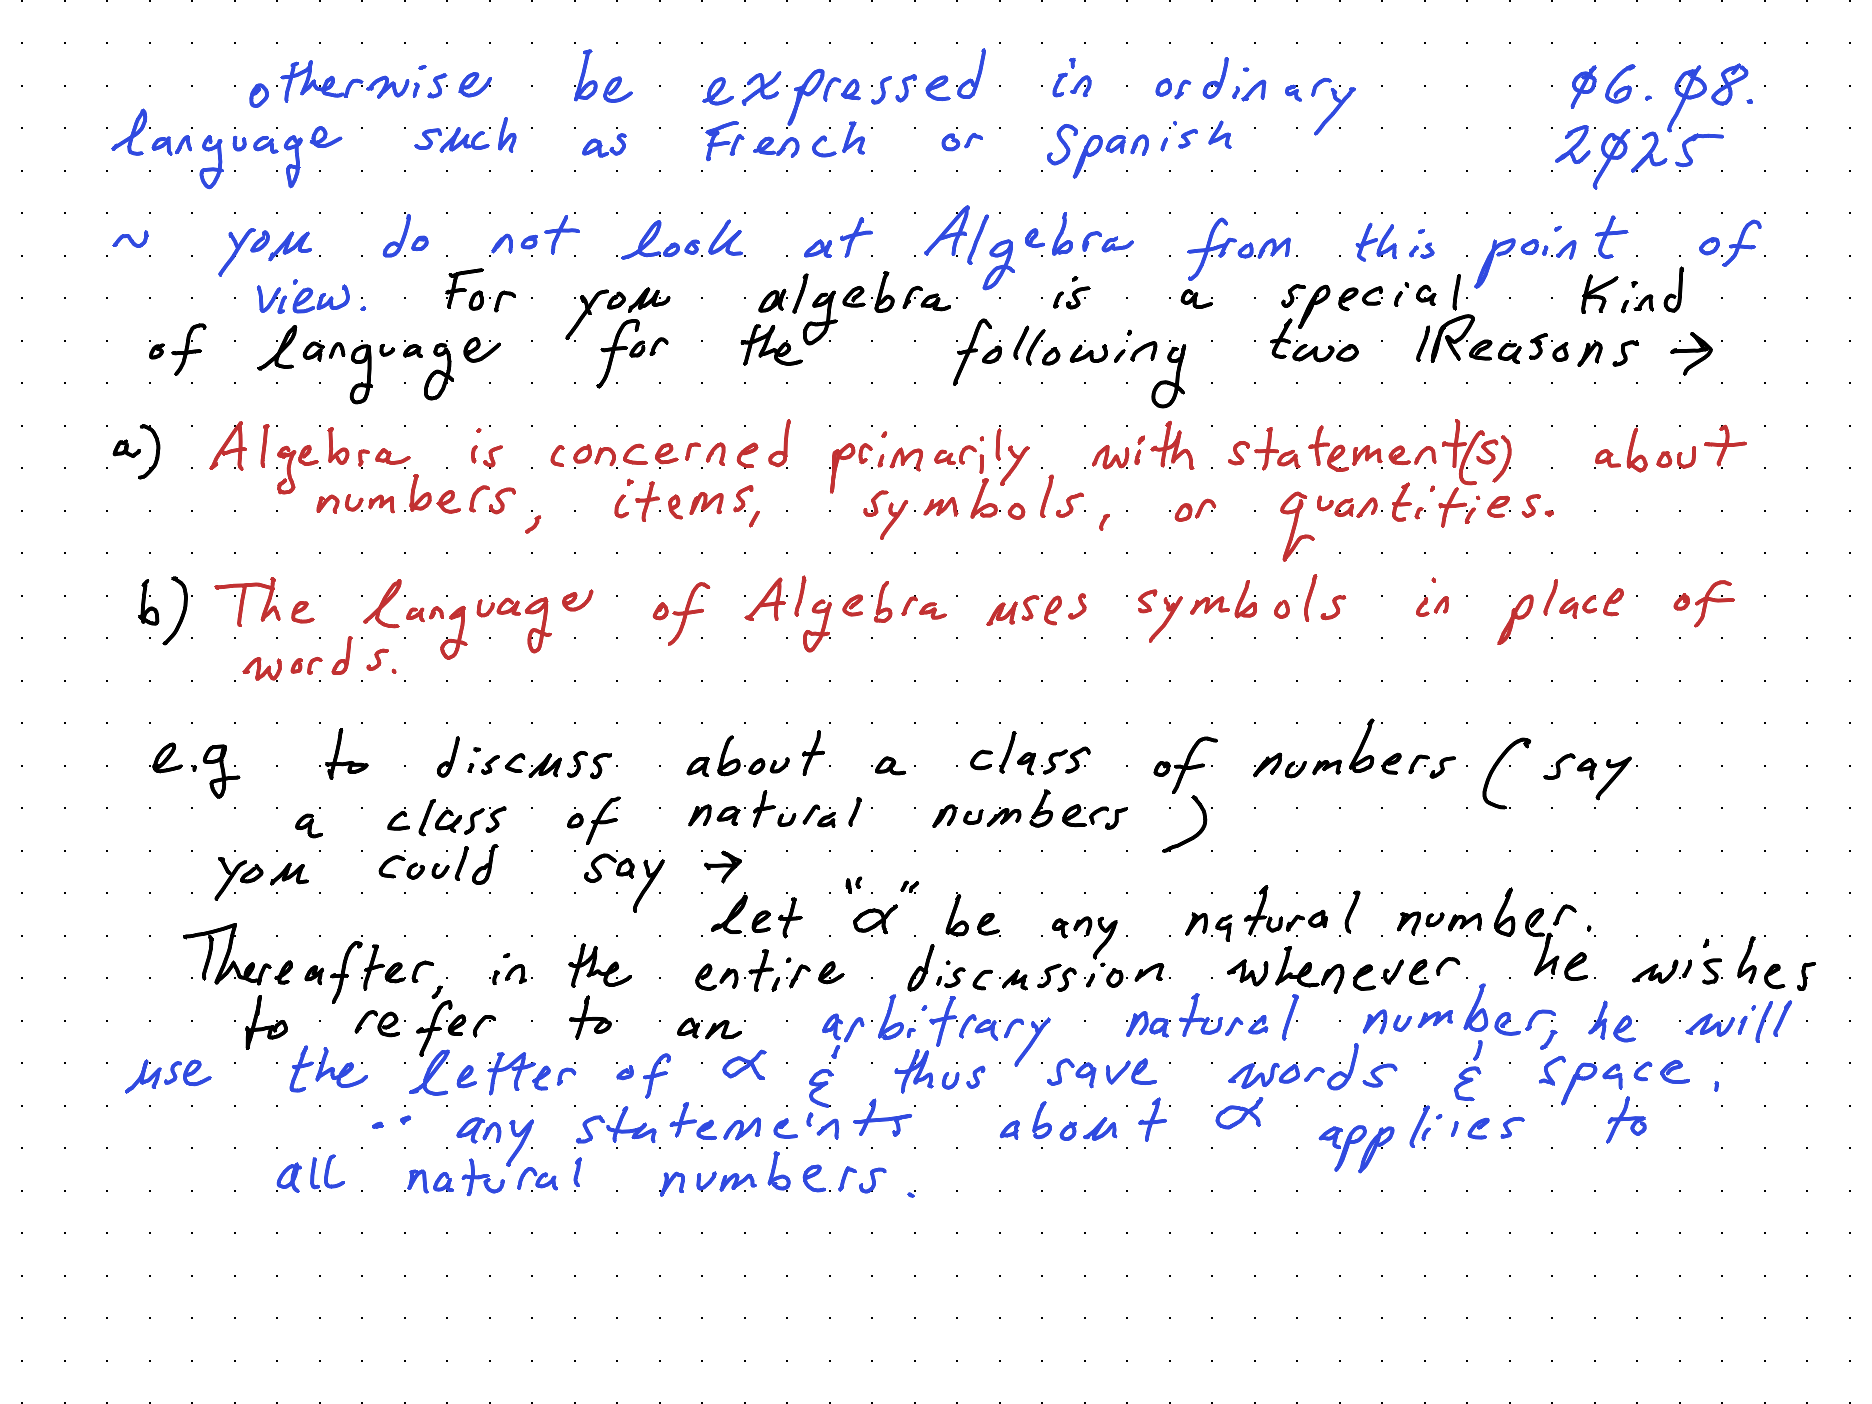 otherwise be expressed in ordinary ø6.ø8.
language such as French or Spanish 2ø25
~ you do not look at Algebra from this point of
view. For you algebra is a special kind
of language for the following two Reasons →
a) Algebra is concerned primarily with statement(s) about
numbers, items, symbols, or quantities.
b) The language of Algebra uses symbols in place of
words.
e.g to discuss about a class of numbers (say
a class of natural numbers)
you could say →
let "α" be any natural number.
Thereafter, in the entire discussion whenever he wishes
to refer to an arbitrary natural number, he will
use the letter of α & thus save words & space.
any statements about α applies to
all natural numbers.